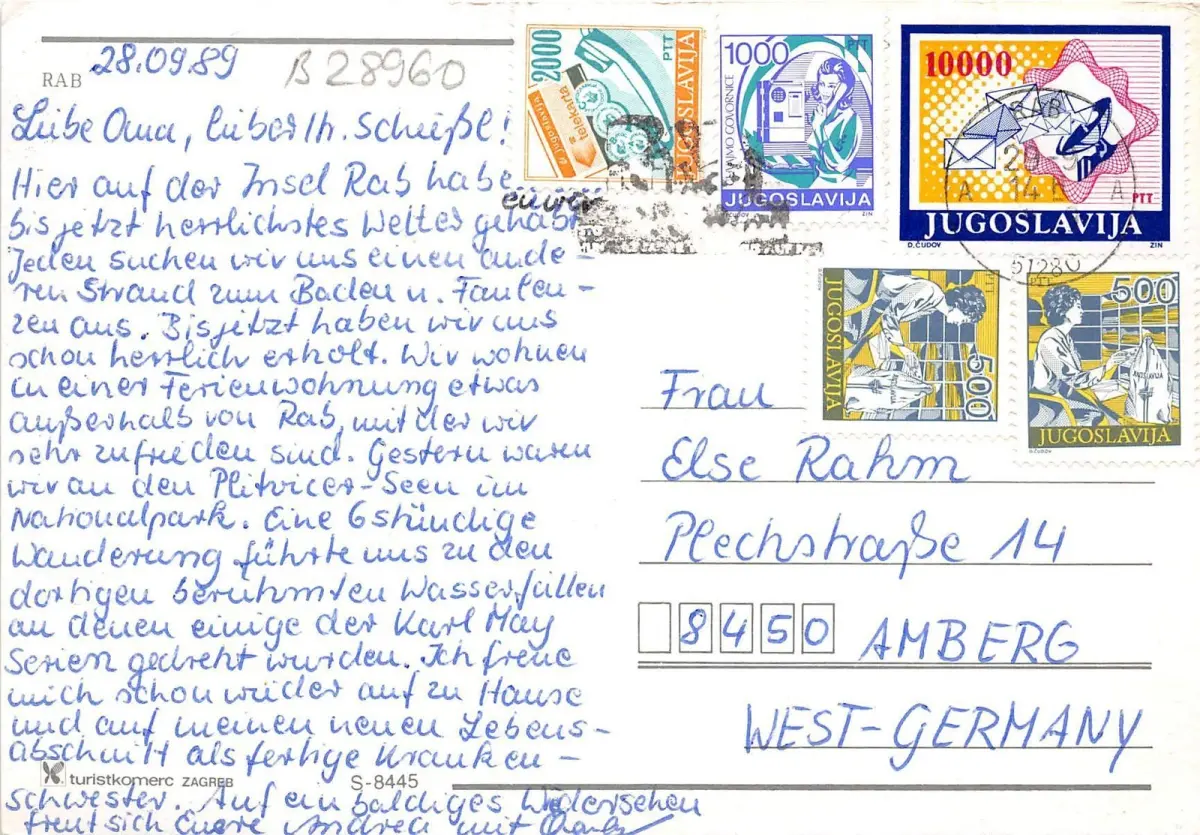 RAB
28.09.89
B 28960
Liebe Oma, lieber Th. Schießl!
Hier auf der Insel Rab haben wir
bis jetzt herrlichstes Wetter gehabt.
Jeden suchen wir uns einen ande-
ren Strand zum Baden u. Faulen-
zen aus. Bis jetzt haben wir uns
schon herrlich erholt. Wir wohnen
in einer Ferienwohnung etwas
außerhalb von Rab, mit der wir
sehr zufrieden sind. Gestern waren
wir an den Plitvicer-Seen im
Nationalpark. Eine 6stündige
Wanderung führte uns zu den
dortigen berühmten Wasserfällen
an denen einige der Karl May
Serien gedreht wurden. Ich freue
mich schon wieder auf zu Hause
und auf meinen neuen Lebens-
abschnitt als fertige Kranken-
schwester. Auf ein baldiges Wiedersehen
freut sich Euere Andrea mit
turistkomerc ZAGREB
S-8445
2000
PTT
JUGOSLAVIJA
telekarta
1000
PTT
JUGOSLAVIJA
D.ČUDOV
ZIN
10000
PTT
JUGOSLAVIJA
D.ČUDOV
ZIN
RAB
A
14
A
51280
500
JUGOSLAVIJA
PTT
500
JUGOSLAVIJA
D.ČUDOV
Frau
Else Rahm
Plechstraße 14
8450 AMBERG
WEST-GERMANY